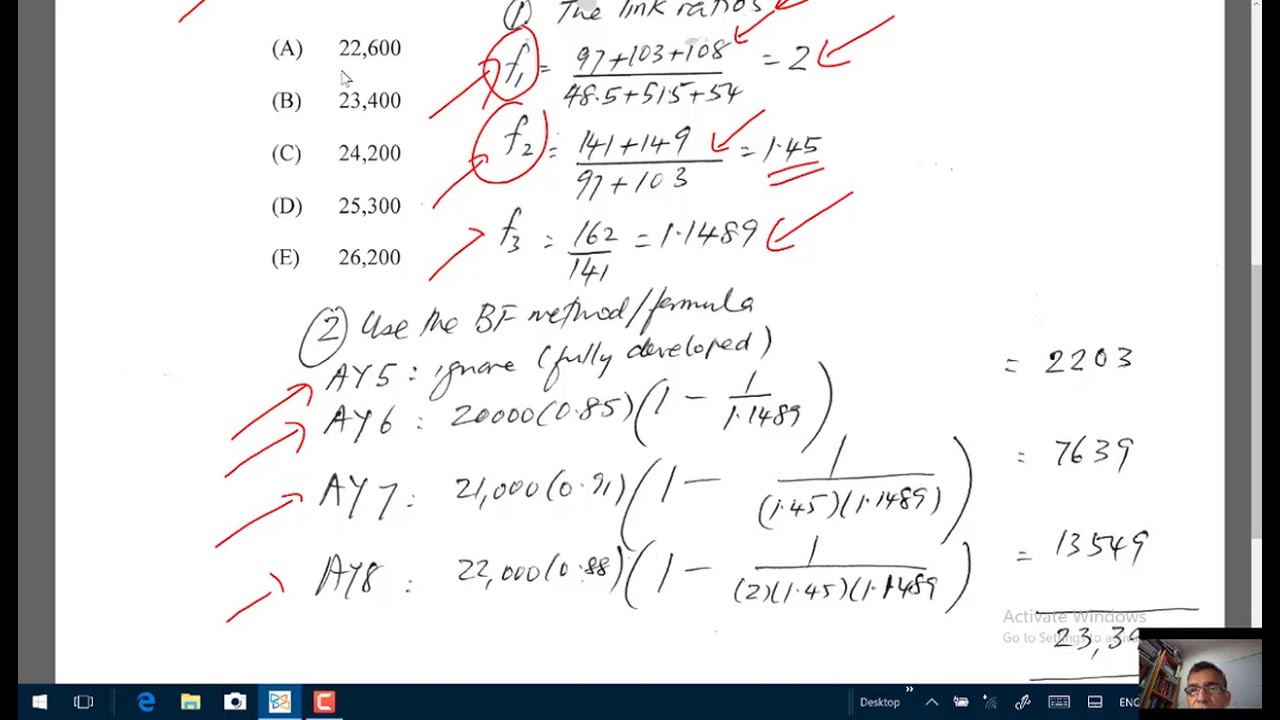 ① The link ratios
(A) 22,600
(B) 23,400
(C) 24,200
(D) 25,300
(E) 26,200
f₁ = (97+103+108)/(48.5+51.5+54) = 2
f₂ = (141+149)/(97+103) = 1.45
f₃ = 162/141 = 1.1489
② Use the BF method/formula
AY5 : ignore (fully developed)
AY6 : 20000(0.85)(1 - 1/1.1489) = 2203
AY7 : 21,000(0.91)(1 - 1/(1.45)(1.1489)) = 7639
AY8 : 22,000(0.88)(1 - 1/(2)(1.45)(1.1489)) = 13549
23,39
Activate Windows
Go to Settings to a
Desktop
ENG